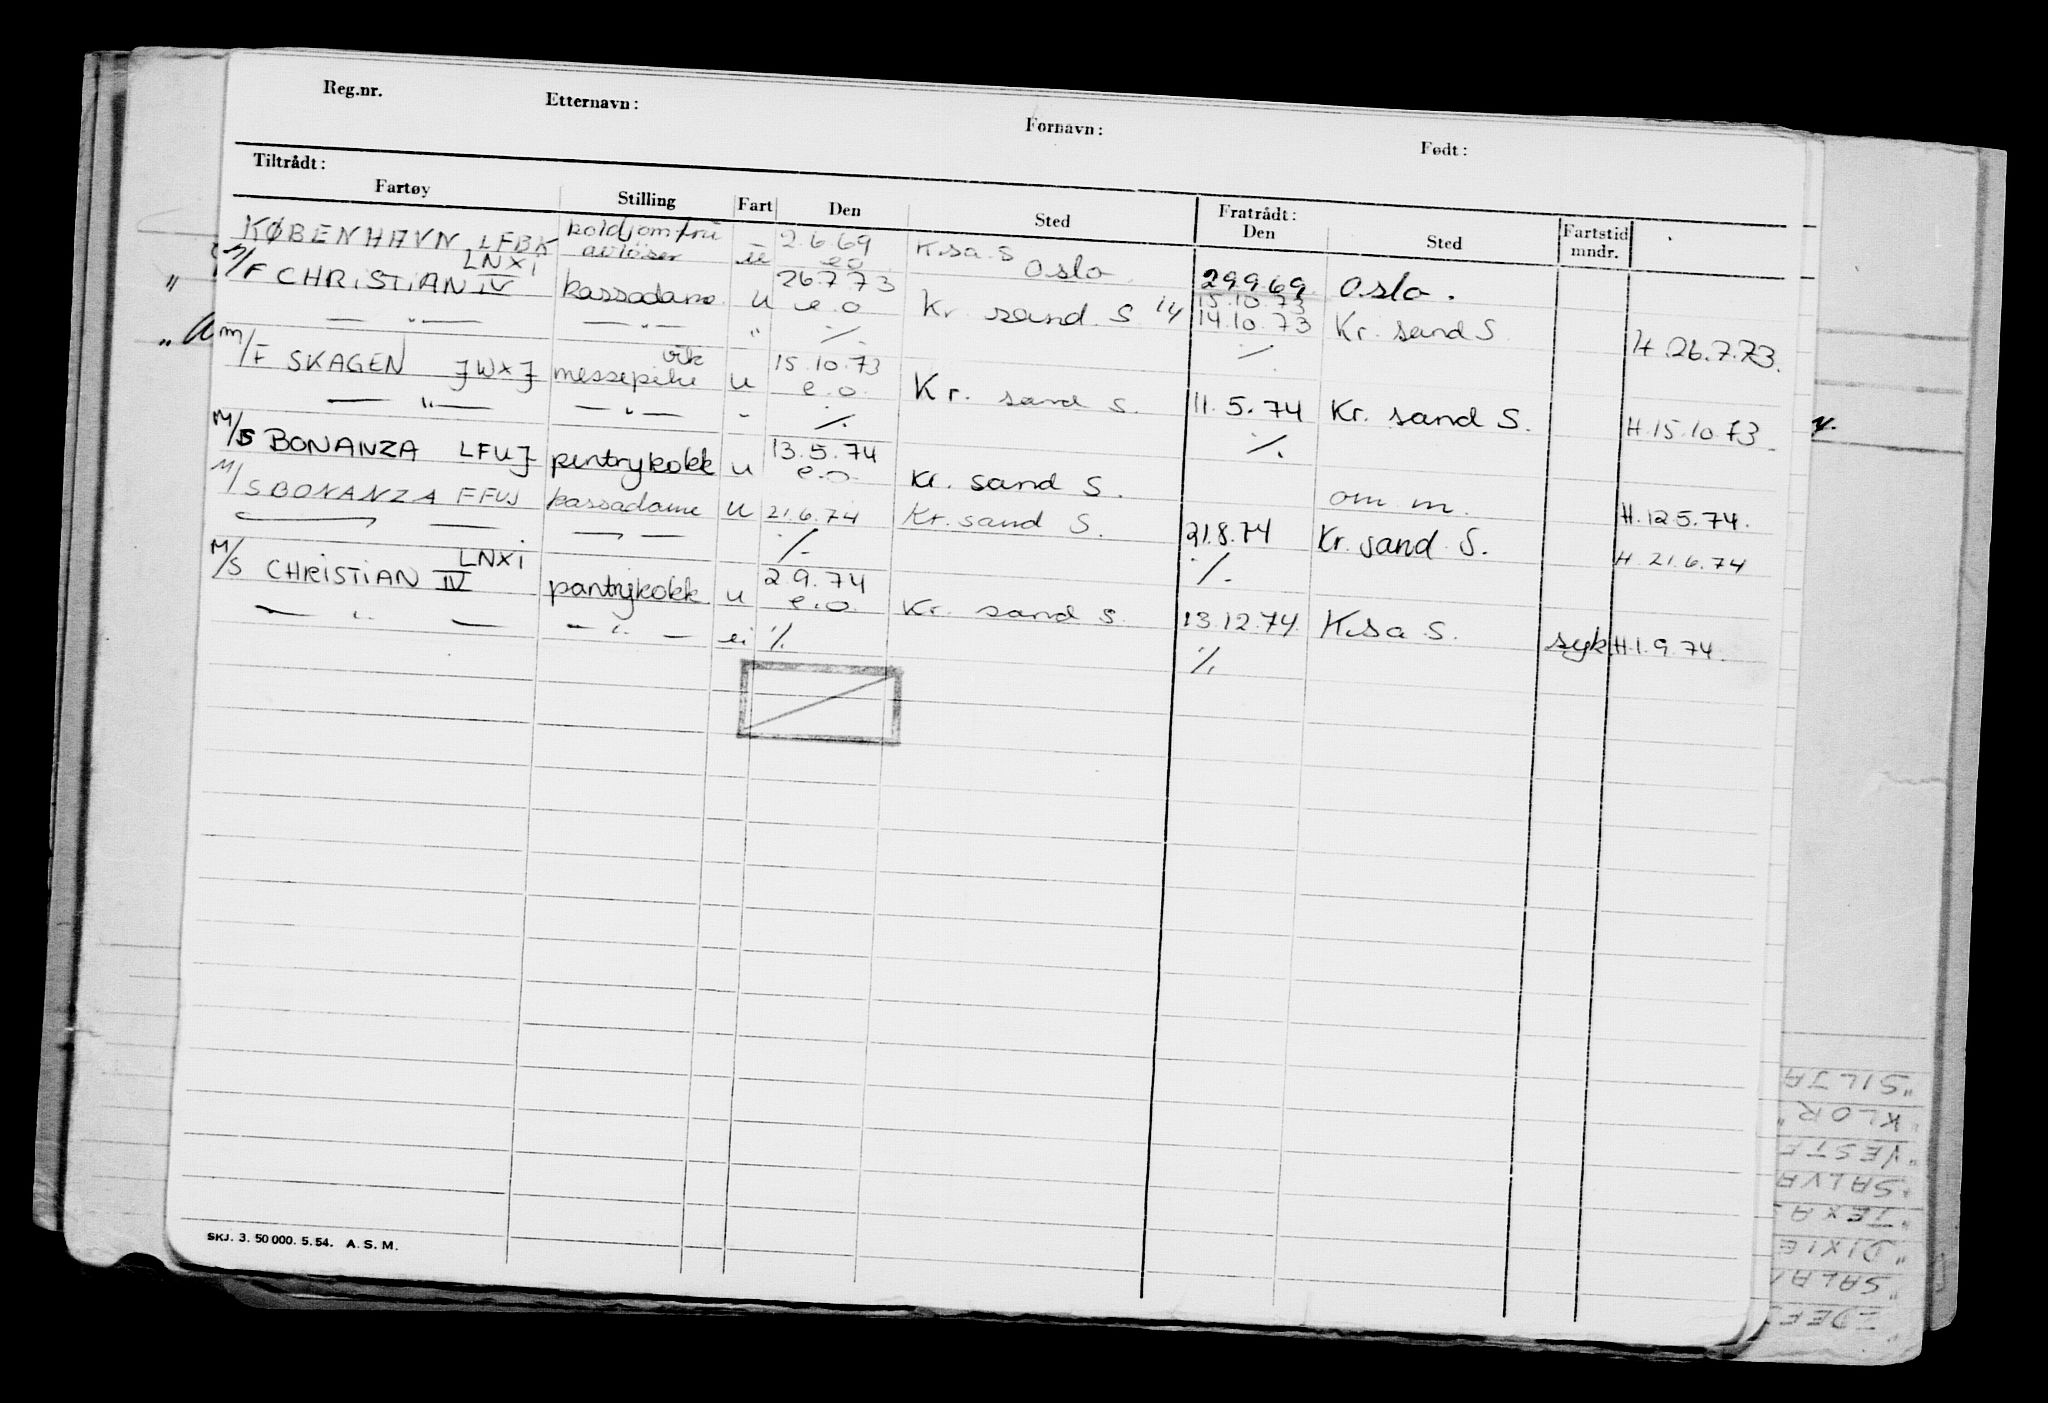 Reg.nr. Etternavn: Fornavn: Født:
Tiltrådt: Fratrådt:
Fartøy Stilling Fart Den Sted Den Sted Fartstid mndr.
KØBENHAVN LFBK koldjomfru avløser u 2.6.69 e.o K.sa. S Oslo 29.9.69 Oslo.
M/F CHRISTIAN IV LNXI kassadame u 26.7.73 e.o Kr. sand. S 14 15.10.73 14.10.73 Kr. sand S. H.26.7.73.
— " — — " — " ·/. ·/.
M/F SKAGEN JWXJ messepike vik u 15.10.73 e.o. Kr. sand S. 11.5.74 Kr. sand S. H.15.10.73.
— " — — " — - ·/. ·/.
M/S BONANZA LFUJ pentrykokk u 13.5.74 e.o. Kr. sand S. om m. H.12.5.74.
M/S BONANZA FFUJ kassadame u 21.6.74 Kr. sand S. 21.8.74 Kr. sand S. H. 21.6.74
·/. ·/.
M/S CHRISTIAN IV LNXI pantrykokk u 2.9.74 e.o. Kr. sand S. 13.12.74. K.sa S. syk. H.1.9.74.
— " — — " — ·/. ·/.
SKJ. 3. 50 000. 5. 54. A. S. M.
"SILJA
"KLOR"
"SALVA
"TEXAS
"DIXIE